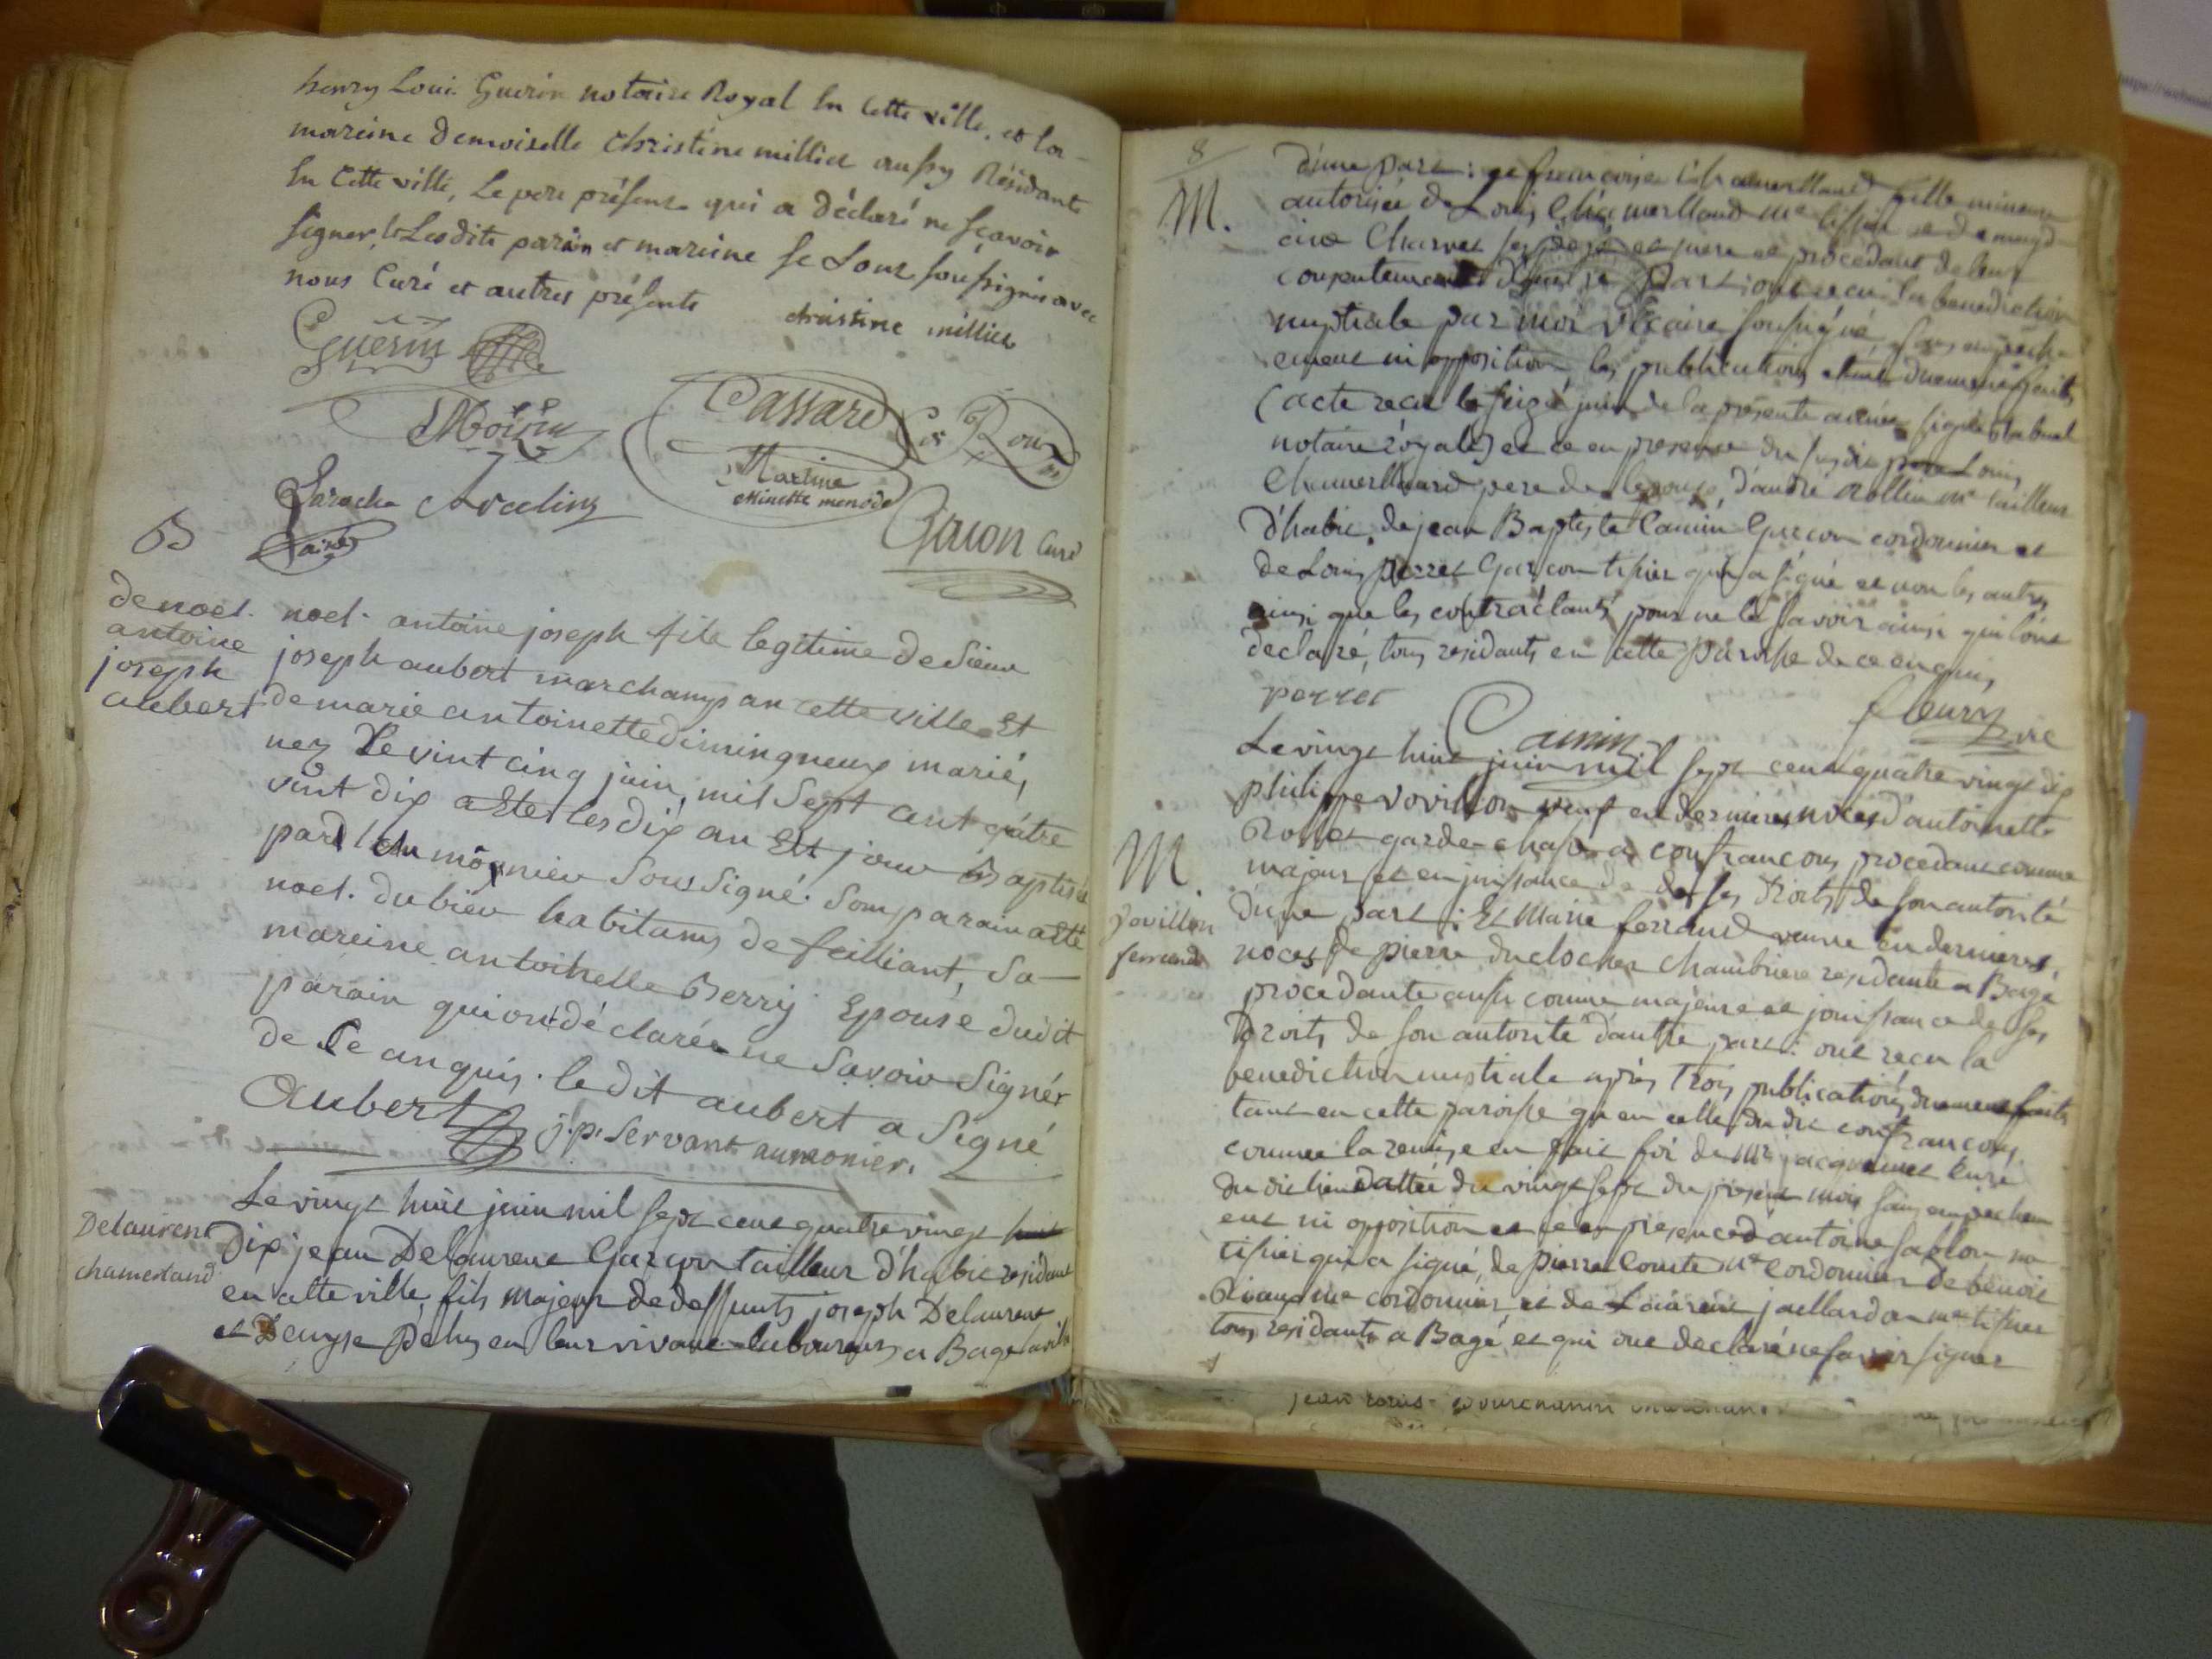 henry Loui Guérin notaire Royal En Cette ville, et la
mareine demoiselle Christine milliet aussy Résidante
En Cette ville, Le pere présent qui a déclaré ne sçavoir
signer, et Lesdits parin et mareine se Sont soussignés avec
nous Curé et autres présents
christine milliet
Guérin
Morin
Cassard
Le Roux
Martine
Minette menode
Laroche Avceling
Giron Curé
B
de noel
antoine
joseph
aubert
noel antoine joseph fils legitime de Sieur
joseph aubert marchamp an cette ville Et
de marie antoinette dimingneux mariés
nez Le vint cinq juin mil sept cent quatre
vint dix a Ete les dix an Et jour Baptisé
par lau monnieu sous Signé. Son parain a été
noel. dubieu habitans de feilliant, Sa
mareine antoinelle Berry Epouse dudit
parain qui ont déclarée ne Savoir Signér
de Ce anquis. le dit aubert a Signé
Aubert
j.p. Servant aumonier.
Delaurent
chamerland
Le vingt huit juin mil sept cent quatre vingt huit
dix jean Delaurent Garçon tailleur d'habit residant
en cette ville, fils majeur de deffunts joseph Delaurent
et Denyse Pehu en leur vivant laboureurs a Bagé laville
8
M.
d'une part : et françoise Chamerlland fille mineure
autorisée de Louis Chamerlland me tissier et de magd
Charvet ses pere et mere et procedant de leur
consentement d'autre Part ; ont recu la benediction
nuptiale par moi vicaire soussigné, sans empeche
ement ni opposition les publications duement faites
(acte recu le seize juin de la présente année signé
notaire royale) et ce en presence du susdit pere Louis
Chamerlland pere de lepouse, d'andré Rollin me tailleur
d'habit, de jean Baptiste Camin Garcon cordonnier et
de Louis perret Garcon tissier qui a signé et non les autres
ainsi que les contractants pour ne le savoir ainsi quils ont
declaré, tous residants en cette paroisse de ce enquis,
perret
Camin
fleury vic
M.
Vovillon
ferrand
Le vingt huit juin mil sept cent quatre vingt dix
philippe vovillon veuf en dernieres noces d'antoinette
Rollet garde-chasse a confrancon, procedant comme
majeur et en jouissance de de ses droits de son autorité
d'une part : Et Marie ferrand veuve en dernieres
noces de pierre duclocher chambriere residante a Bagé
procedante aussi comme majeure et jouissance de ses
droits de son autorité d'autre part : ont recu la
benediction nuptiale après trois publications duement faites
tant en cette paroisse qu en celle du dit confrancon,
comme la remise en fait foi de Mr jacquemet curé
du dit lieu dattée du vingt sept du present mois sans empechem
ent ni opposition et ce en presence d'antoine sablon me
tissier qui a signé, de pierre Comte Me Cordonnier de benoit
me cordonnier, et de Laurent jaillardon me tissier
tous residants a Bagé et qui ont declaré ne savoir signer